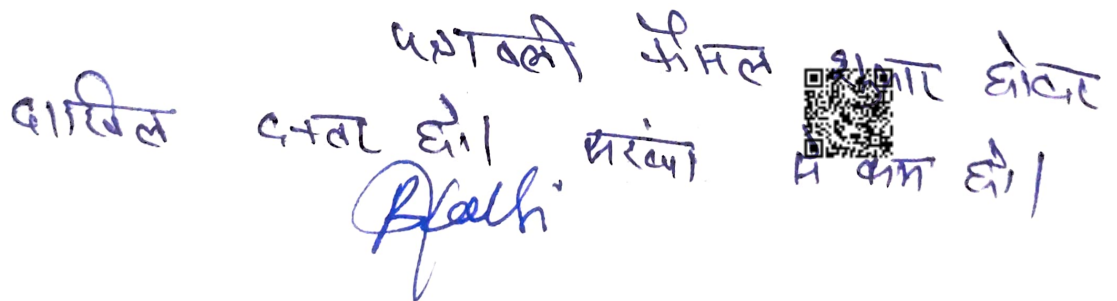 पत्रावली फैसल शुमार होकर
दाखिल दफ्तर हो। संख्या से कम हो।